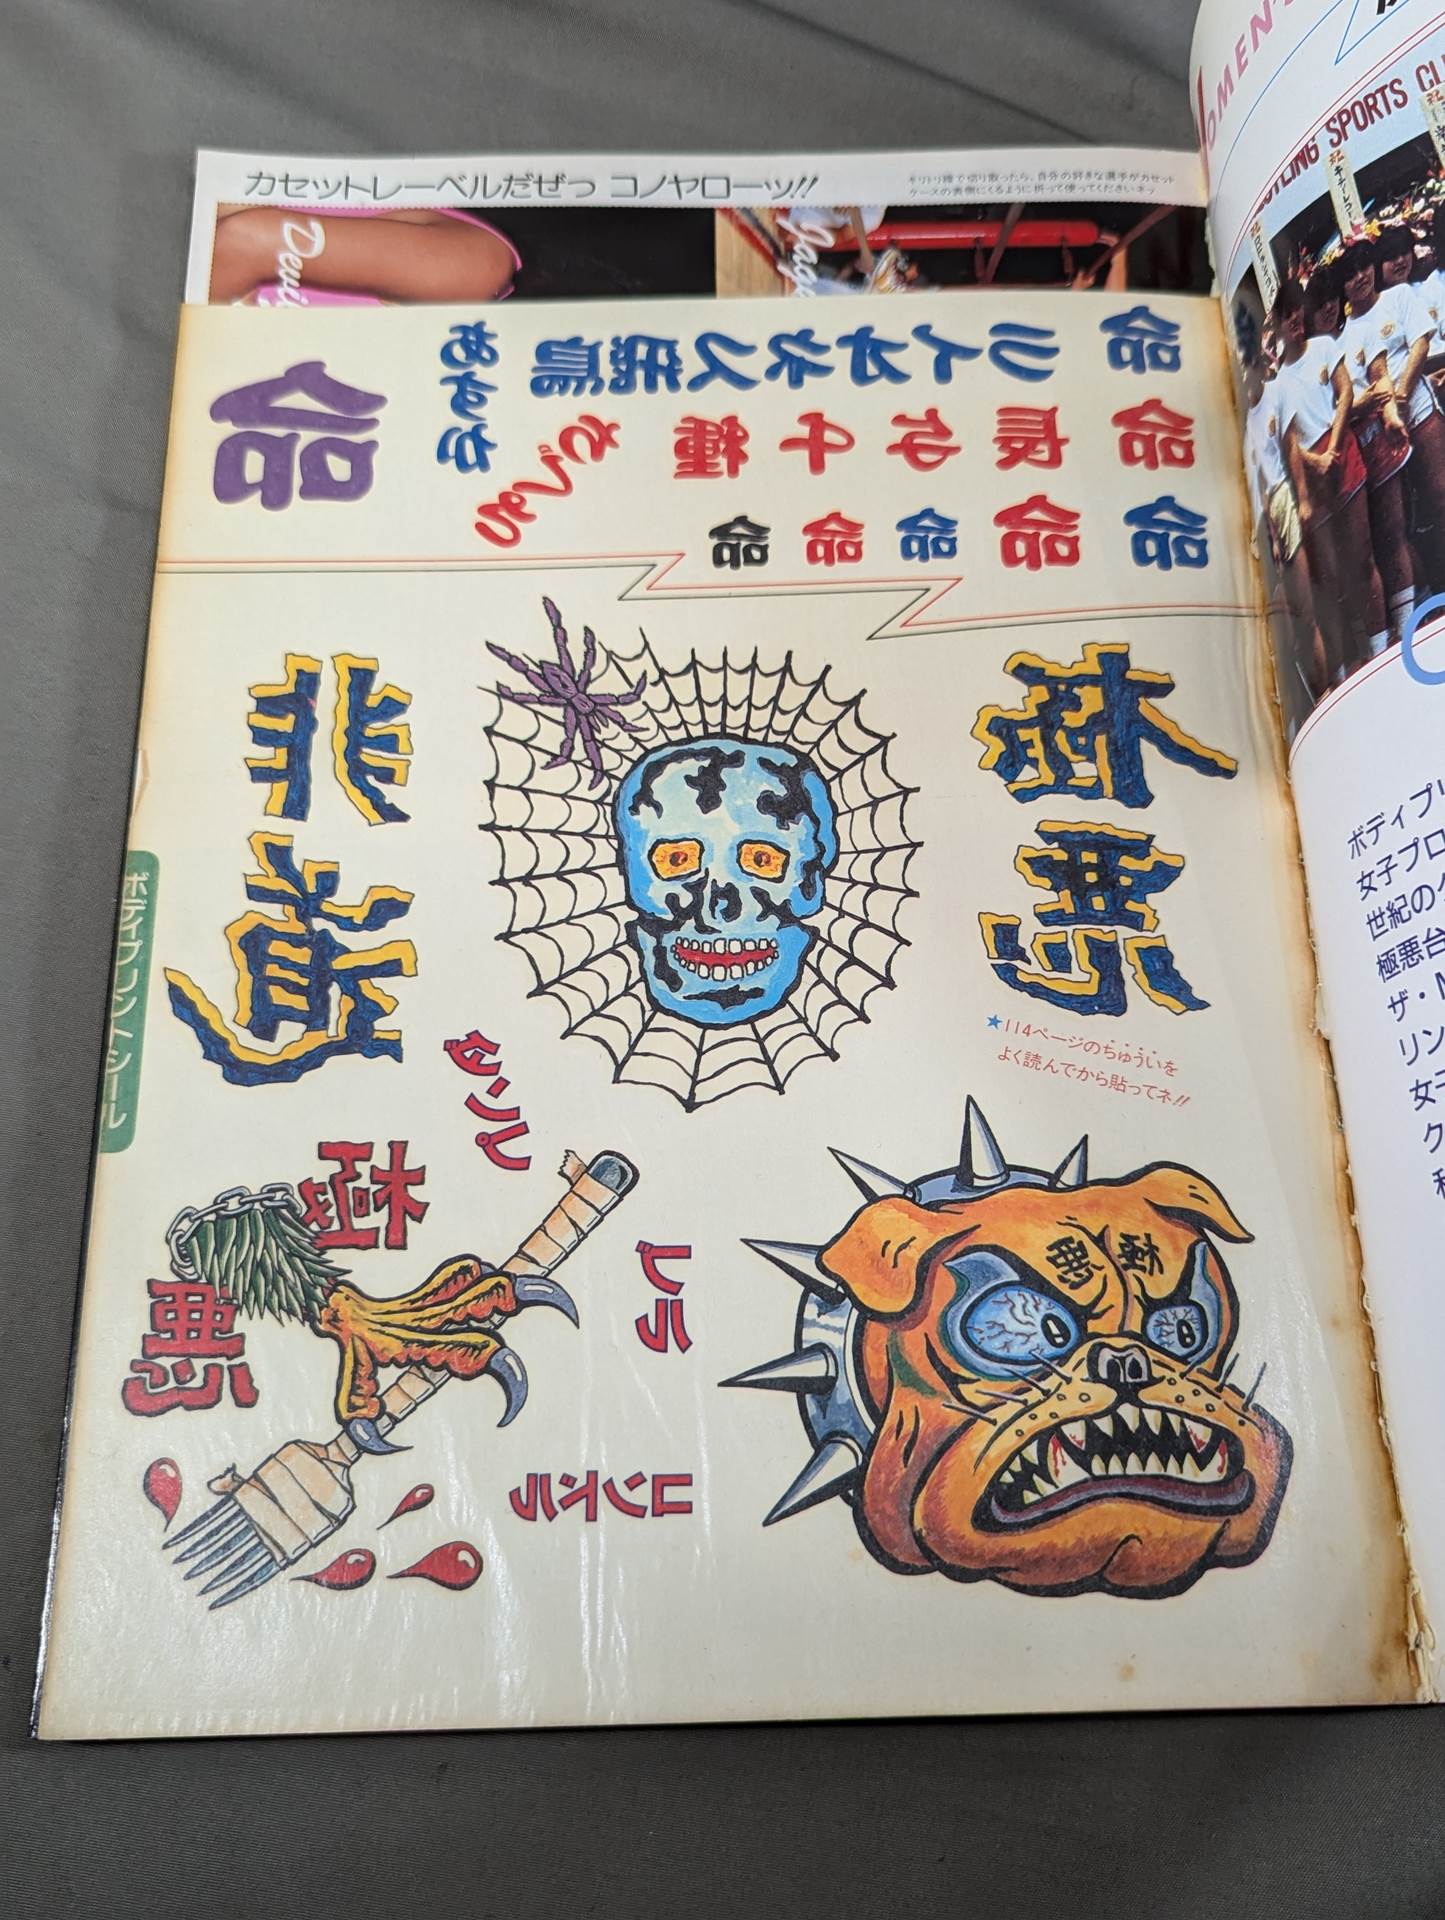 カセットレーベルだぜっ コノヤローッ!!
キリトリ線で切り取ったら、自分の好きな選手がカセット
ケースの表側にくるように折って使ってくださいネッ
命 ライオネス飛鳥
あんた
命 長与千種
命
命 命 命 命 命
極悪
非道
★114ページのちゅういを
よく読んでから貼ってネ!!
ボディプリントシール
ダンプ
極悪
ブル
コンドル
極悪
SPORTS
ボディプリ
女子プロ
世紀の
極悪台
ザ・
リン
女子
ク